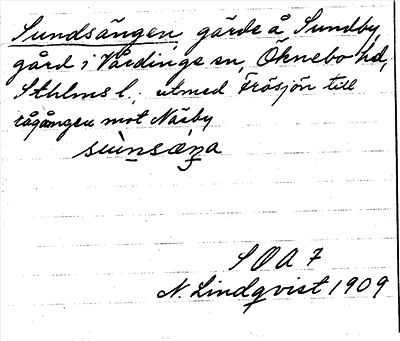 Sundsängen, gärde å Sundby
gård i Vårdinge sn, Öknebo hd,
Sthlms l., utmed Frösjön till
rågången mot Näsby
sùnsæŋa
S O A 7
N. Lindqvist 1909